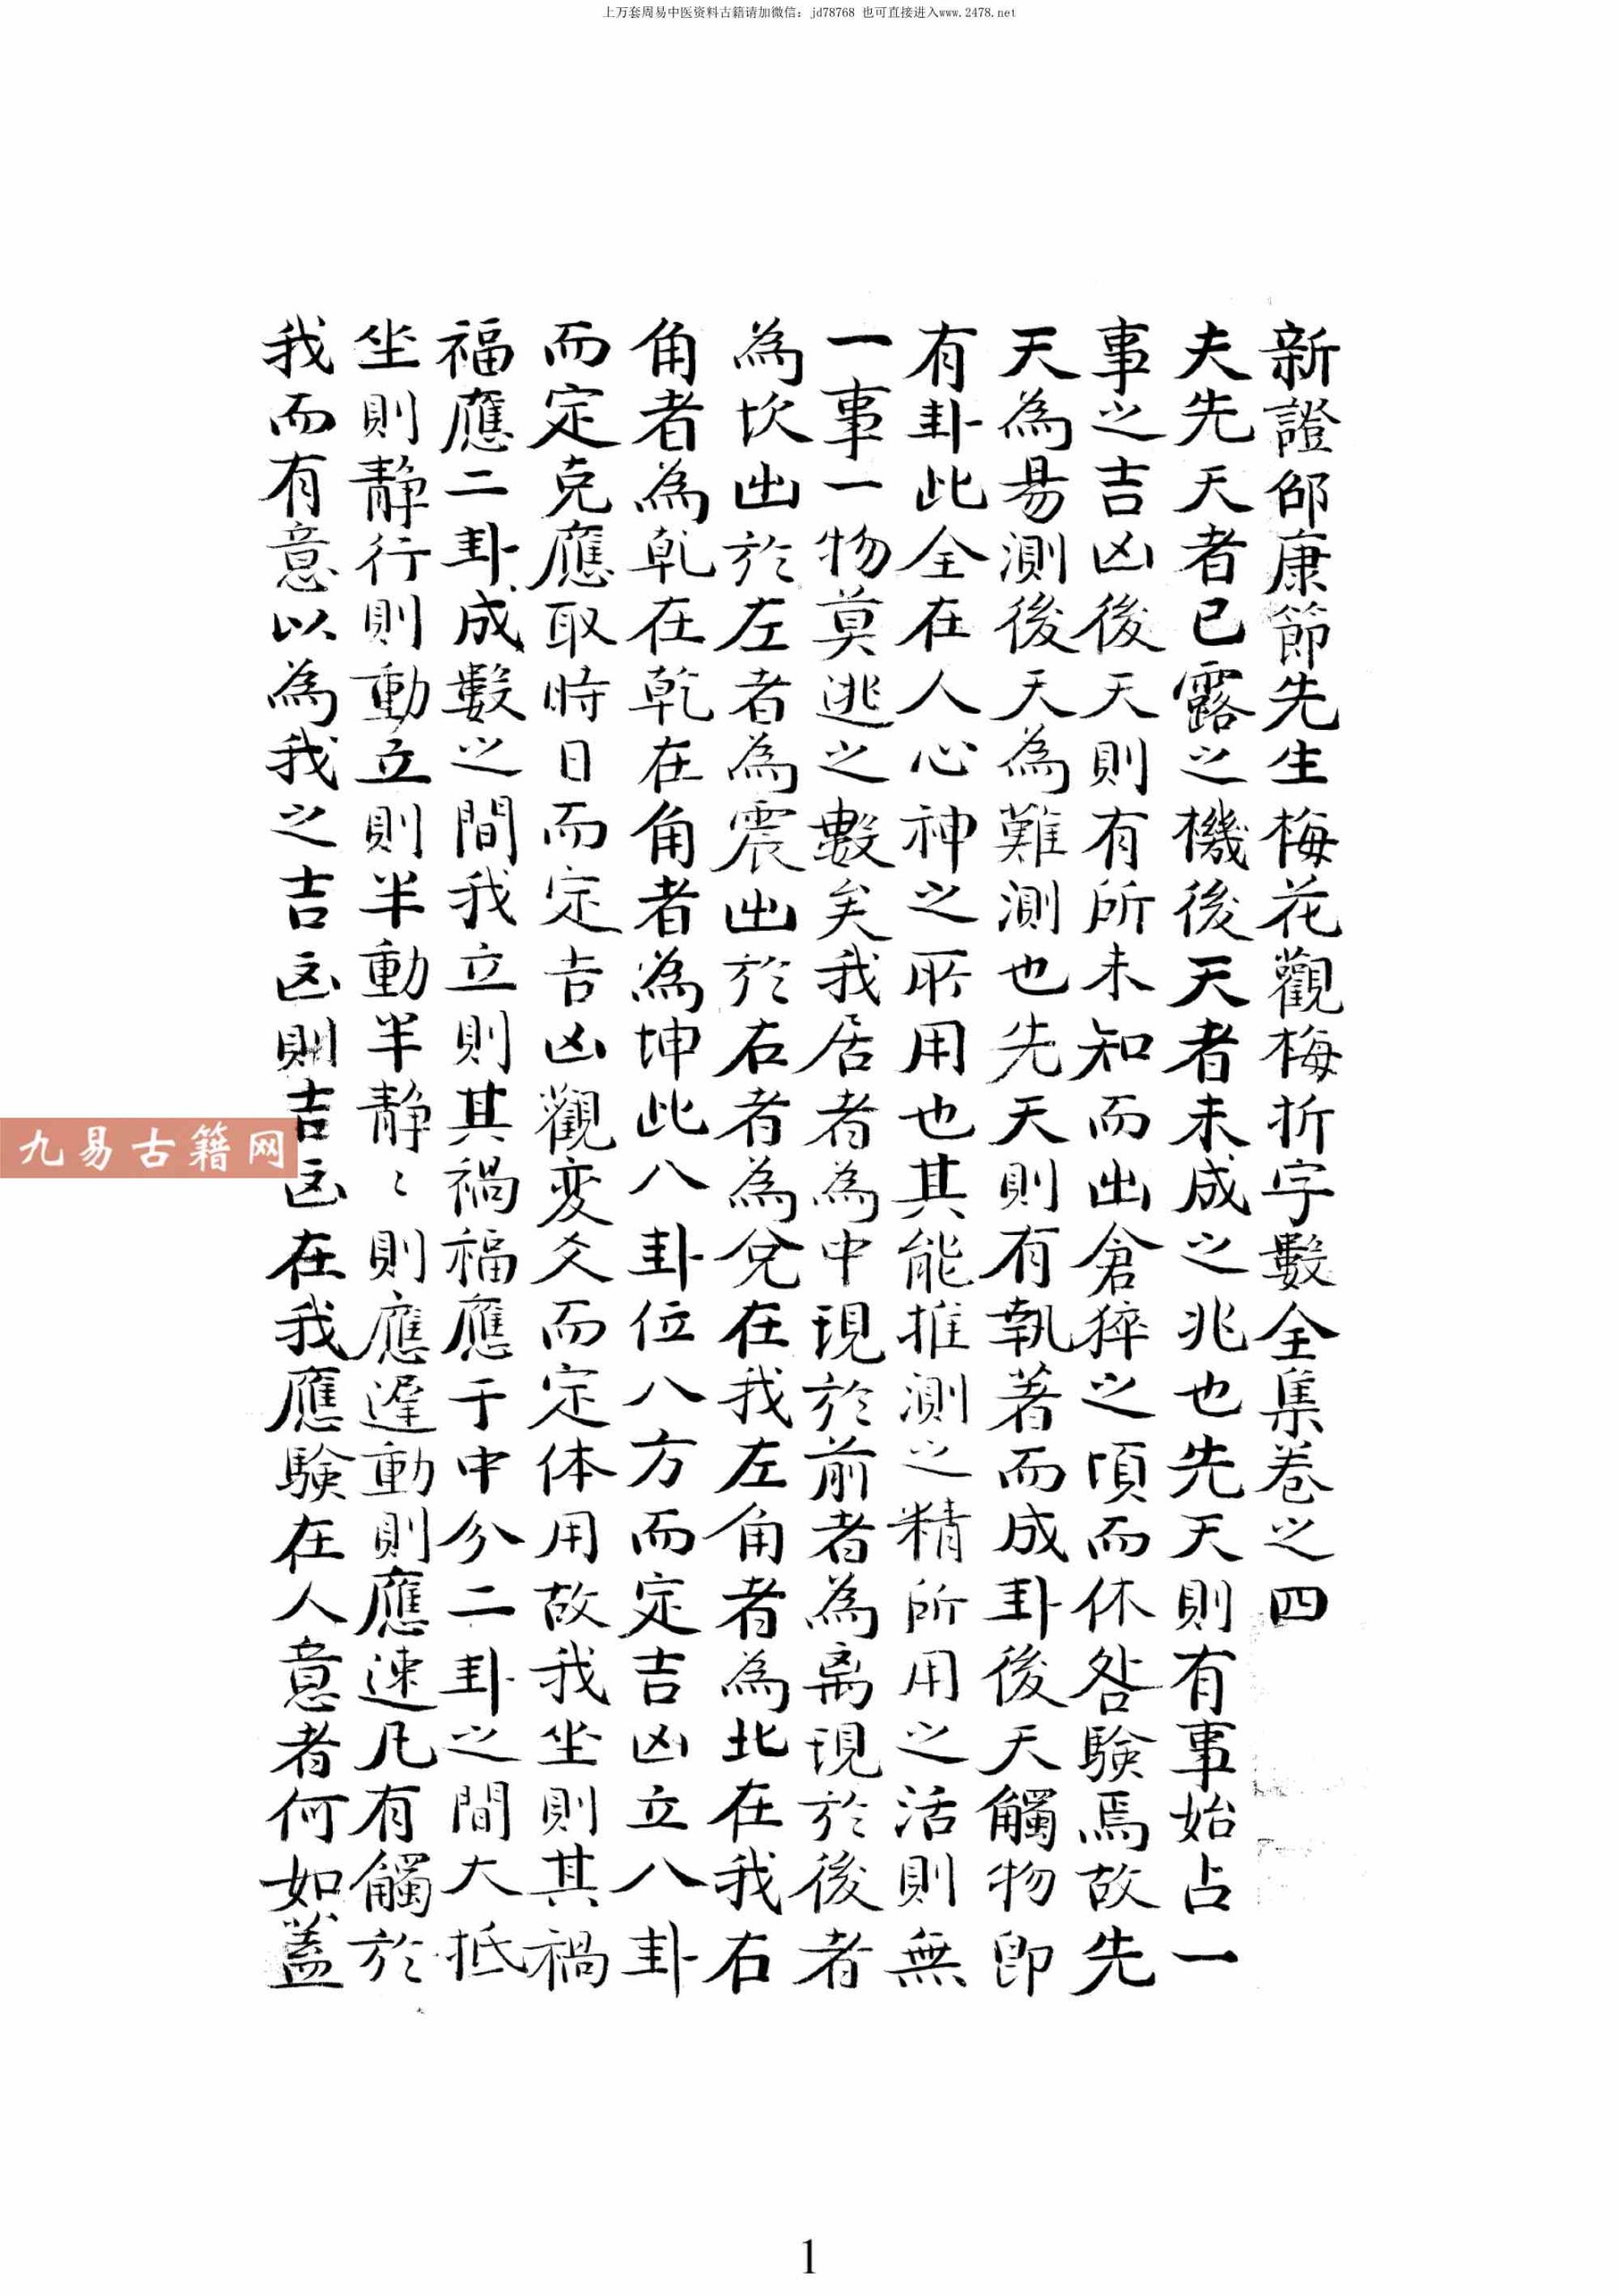 上万套周易中医资料古籍请加微信：jd78768 也可直接进入www.2478.net
新證邵康節先生梅花觀梅折字數全集卷之四
夫先天者已露之機後天者未成之兆也先天則有事始占一
事之吉凶後天則有所未知而出倉猝之頃而休咎験焉故先
天為易測後天為難測也先天則有執著而成卦後天觸物即
有卦此全在人心神之所用也其能推測之精所用之活則無
一事一物莫逃之數矣我居者為中現於前者為离現於後者
為坎出於左者為震出於右者為兌在我左角者為北在我右
角者為乹在乾在角者為坤此八卦位八方而定吉凶立八卦
而定克應取時日而定吉凶觀変爻而定体用故我坐則其禍
福應二卦成數之間我立則其禍福應于中分二卦之間大抵
坐則靜行則動立則半動半靜〻則應遲動則應速凡有觸於
我而有意以為我之吉凶則吉凶在我應験在人意者何如蓋
九易古籍网
1